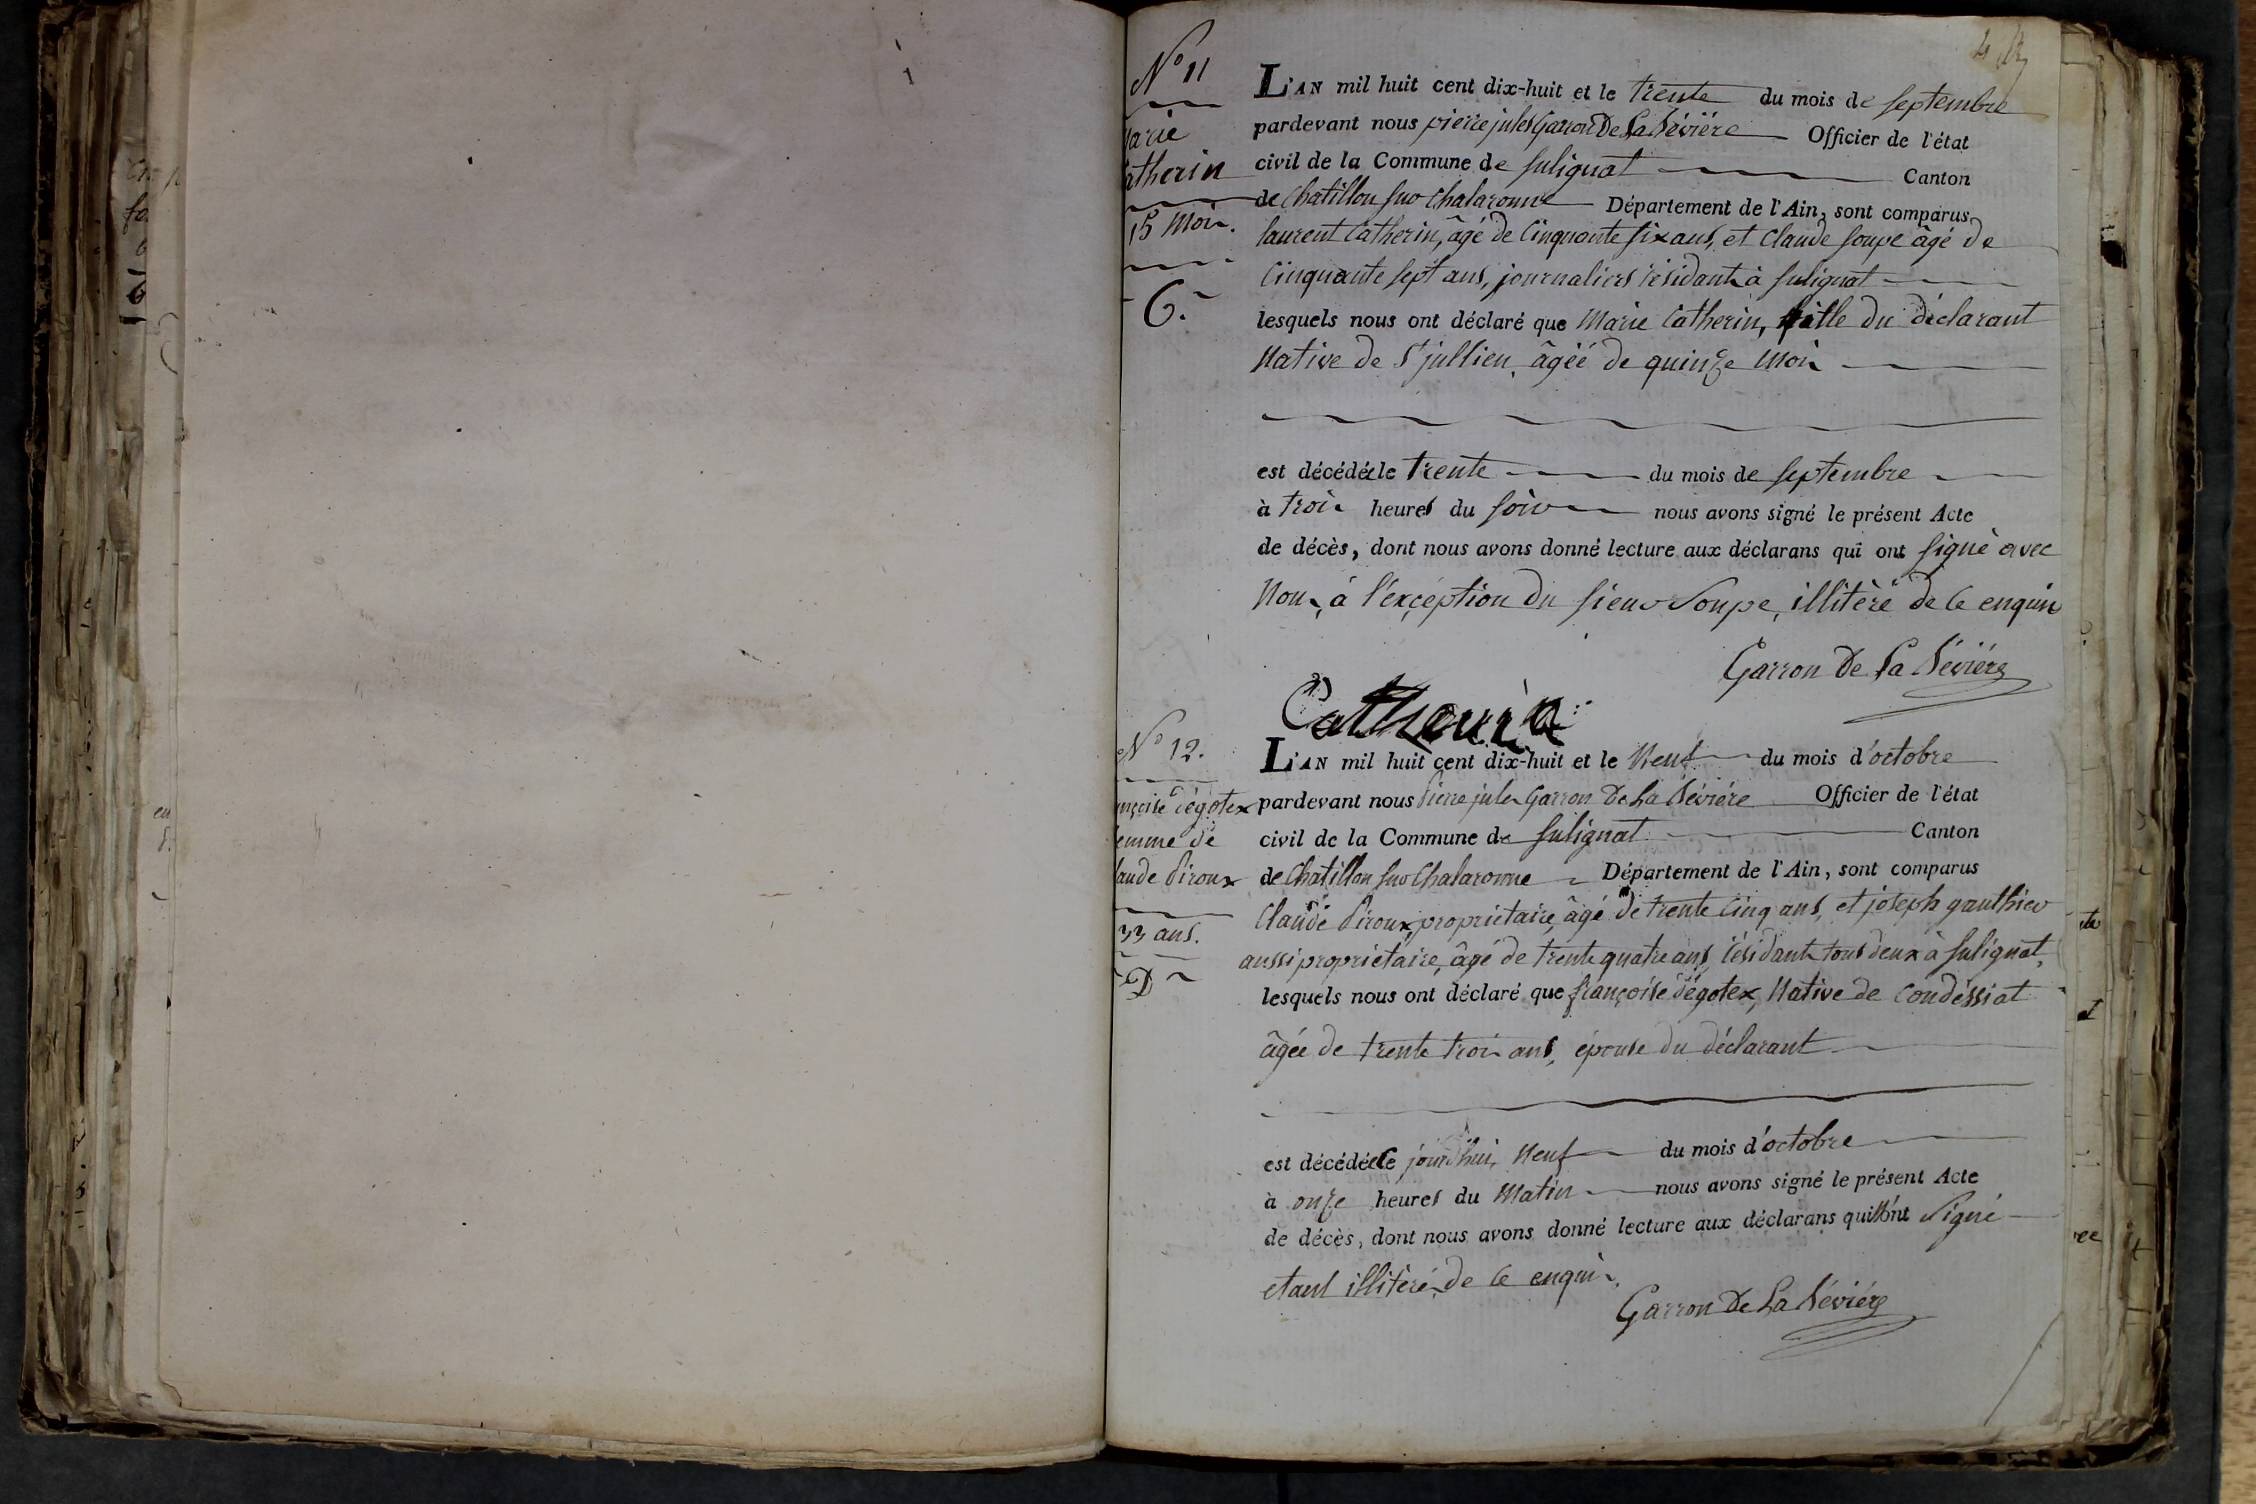 N° 11
arie
atherin
15 mois.
C.
L'AN mil huit cent dix-huit et le trente du mois de septembre
pardevant nous pierre jules Garron De La Bévière Officier de l'état
civil de la Commune de sulignat Canton
de Chatillon sur Chalaronne Département de l'Ain, sont comparus
laurent Catherin, âgé de Cinquante six ans, et Claude soupe âgé de
Cinquante sept ans, journaliers résidants à sulignat
lesquels nous ont déclaré que Marie Catherin, fille du déclarant
Native de St jullien, âgéé de quinze mois
est décédée le trente du mois de septembre
à trois heures du soir nous avons signé le présent Acte
de décès, dont nous avons donné lecture aux déclarans qui ont signé avec
Nous, à l'exception du sieur Soupe, illitéré de ce enquis
Garron De La Bévière
Catherin
N° 12.
nçoise dégotex
emme de
laude Piroux
33 ans.
D
L'AN mil huit cent dix-huit et le Neuf du mois d'octobre
pardevant nous Pierre jules Garron De La Bévière Officier de l'état
civil de la Commune de sulignat Canton
de Chatillon sur Chalaronne Département de l'Ain, sont comparus
Claude Piroux, propriétaire, âgé de trente Cinq ans, et joseph gauthier
aussi propriétaire, âgé de trente quatre ans, résidants tous deux à sulignat,
lesquels nous ont déclaré que françoise dégotex, Native de Condéssiat
âgée de trente trois ans, épouse du déclarant
est décédée ce jourd'hui, Neuf du mois d'octobre
à onze heures du Matin nous avons signé le présent Acte
de décès, dont nous avons donné lecture aux déclarans qui n'ont signé
etant illitérés de ce enquis.
Garron De La Bévière